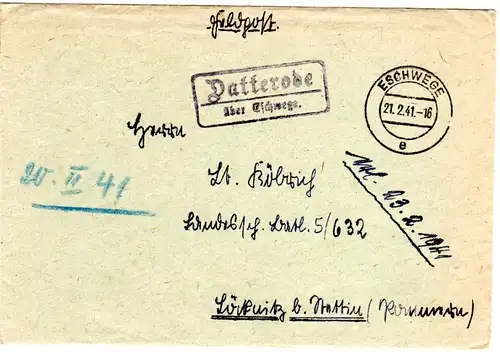 Feldpost.
Datterode
über Eschwege.
ESCHWEGE
21.2.41.-16
e
Herrn
20. II 41
Lt. Köbrich
Landessch. Batl. 5/632
23.2.1941
Löcknitz b. Stettin (Pommern)